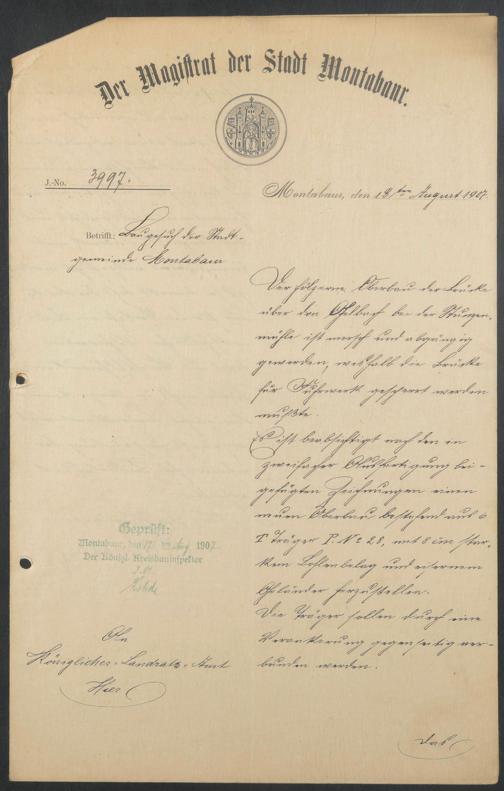 Der Magistrat der Stadt Montabaur.
J.-No. 3997.
Montabaur, den 12ten August 1907.
Betrifft: Baugesuch der Stadt-
gemeinde Montabaur
Der hölzerne Oberbau der Brücke
über den Gelbach bei der
mühle ist morsch und abgängig
geworden, weshalb die Brücke
für Fuhrwerk gesperrt werden
mußte.
Es ist beabsichtigt nach den in
zweifacher Ausfertigung bei-
gefügten Zeichnungen einen
neuen Oberbau, bestehend aus 6
T Träger P. No 28, mit 8 cm star-
ken Bohlenbelag und eisernem
Geländer herzustellen.
Die Träger sollen durch eine
Verankerung gegenseitig ver-
bunden werden.
Geprüft:
Montabaur, den Aug. 1907
Der Königl. Kreisbauinspektor
An
Königliches-Landrats-Amt
Hier
Das